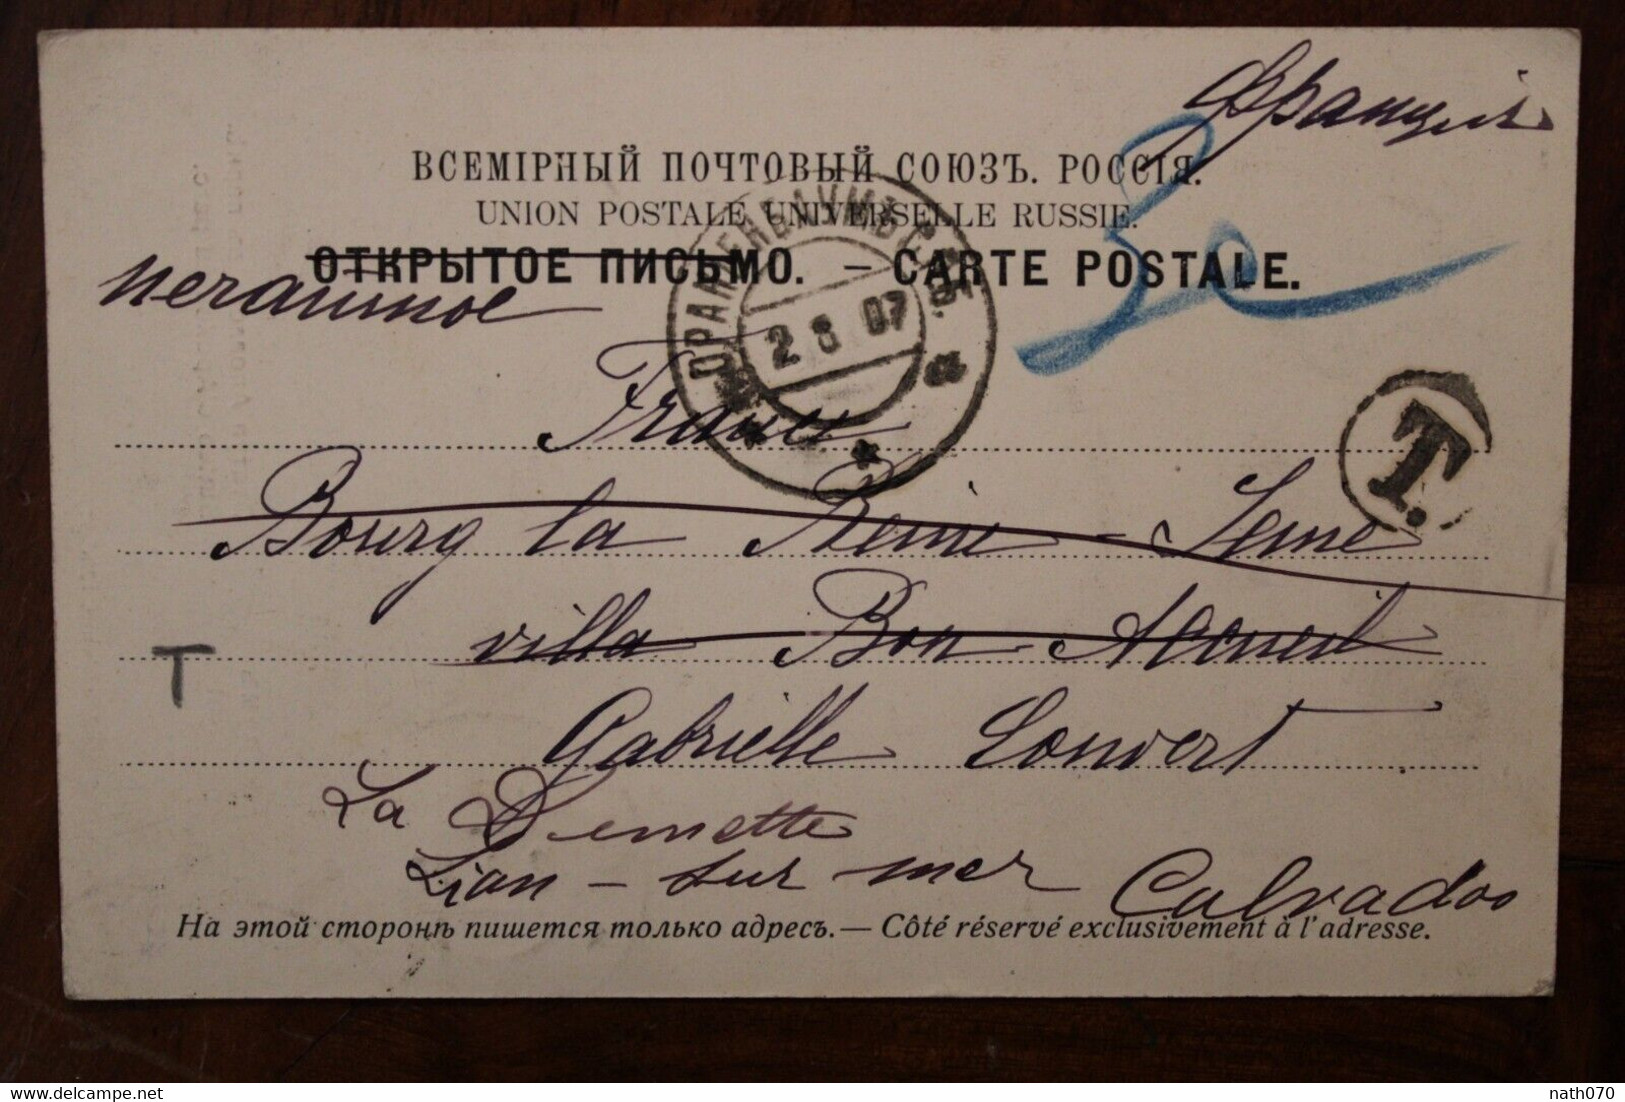 Франція
ВСЕМІРНЫЙ ПОЧТОВЫЙ СОЮЗЪ. РОССІЯ.
UNION POSTALE UNIVERSELLE RUSSIE.
ОТКРЫТОЕ ПИСЬМО. — CARTE POSTALE.
печатное
2 8 07
а
France
T.
Bourg la Reine - Seine
villa Bon Accueil
T
Gabrielle Louvert
La Demette
Lion - sur mer Calvados
На этой сторонѣ пишется только адресъ. — Côté réservé exclusivement à l'adresse.
delcampe.net
nath070